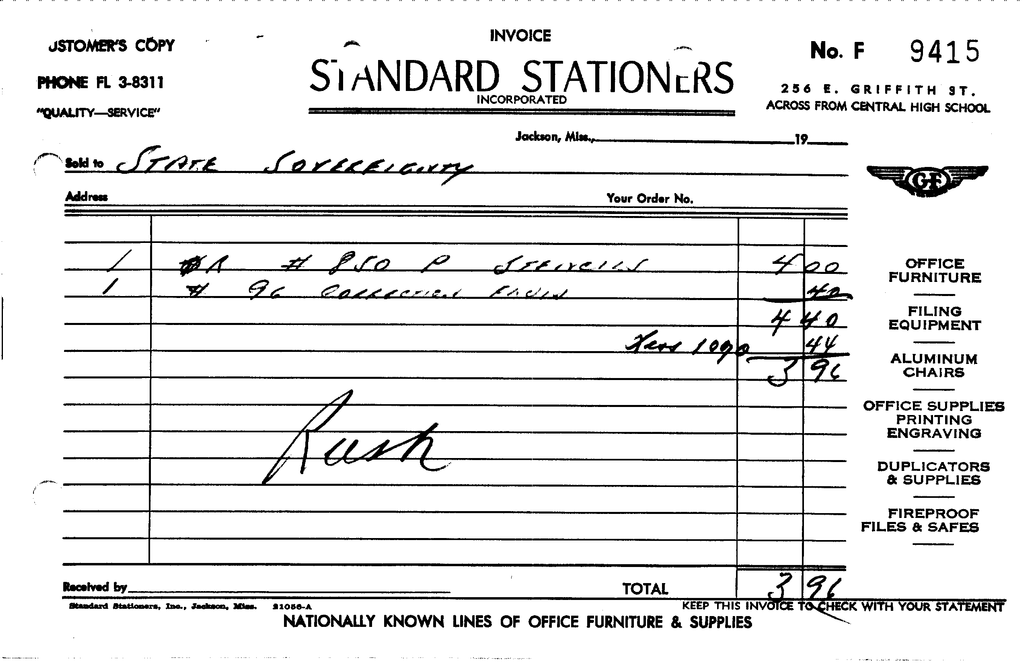 INVOICE
USTOMER'S COPY
No. F 9415
STANDARD STATIONERS
INCORPORATED
PHONE FL 3-8311
256 E. GRIFFITH ST.
"QUALITY—SERVICE"
ACROSS FROM CENTRAL HIGH SCHOOL
Jackson, Miss., 19
Sold to STATE SOVEREIGNTY
Address Your Order No.
GF
1 # 850 P STENCILS 4 00
1 # 96 CORRECTION FLUID 40
4 40
Less 10% 44
3 96
Rush
OFFICE
FURNITURE
FILING
EQUIPMENT
ALUMINUM
CHAIRS
OFFICE SUPPLIES
PRINTING
ENGRAVING
DUPLICATORS
& SUPPLIES
FIREPROOF
FILES & SAFES
Received by TOTAL 3 96
Standard Stationers, Inc., Jackson, Miss. 21056-A
KEEP THIS INVOICE TO CHECK WITH YOUR STATEMENT
NATIONALLY KNOWN LINES OF OFFICE FURNITURE & SUPPLIES